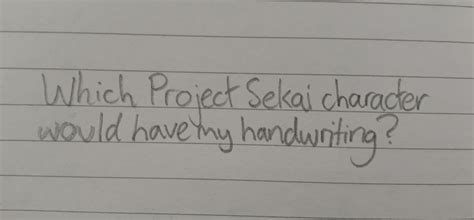 Which Project Sekai character
would have my handwriting?